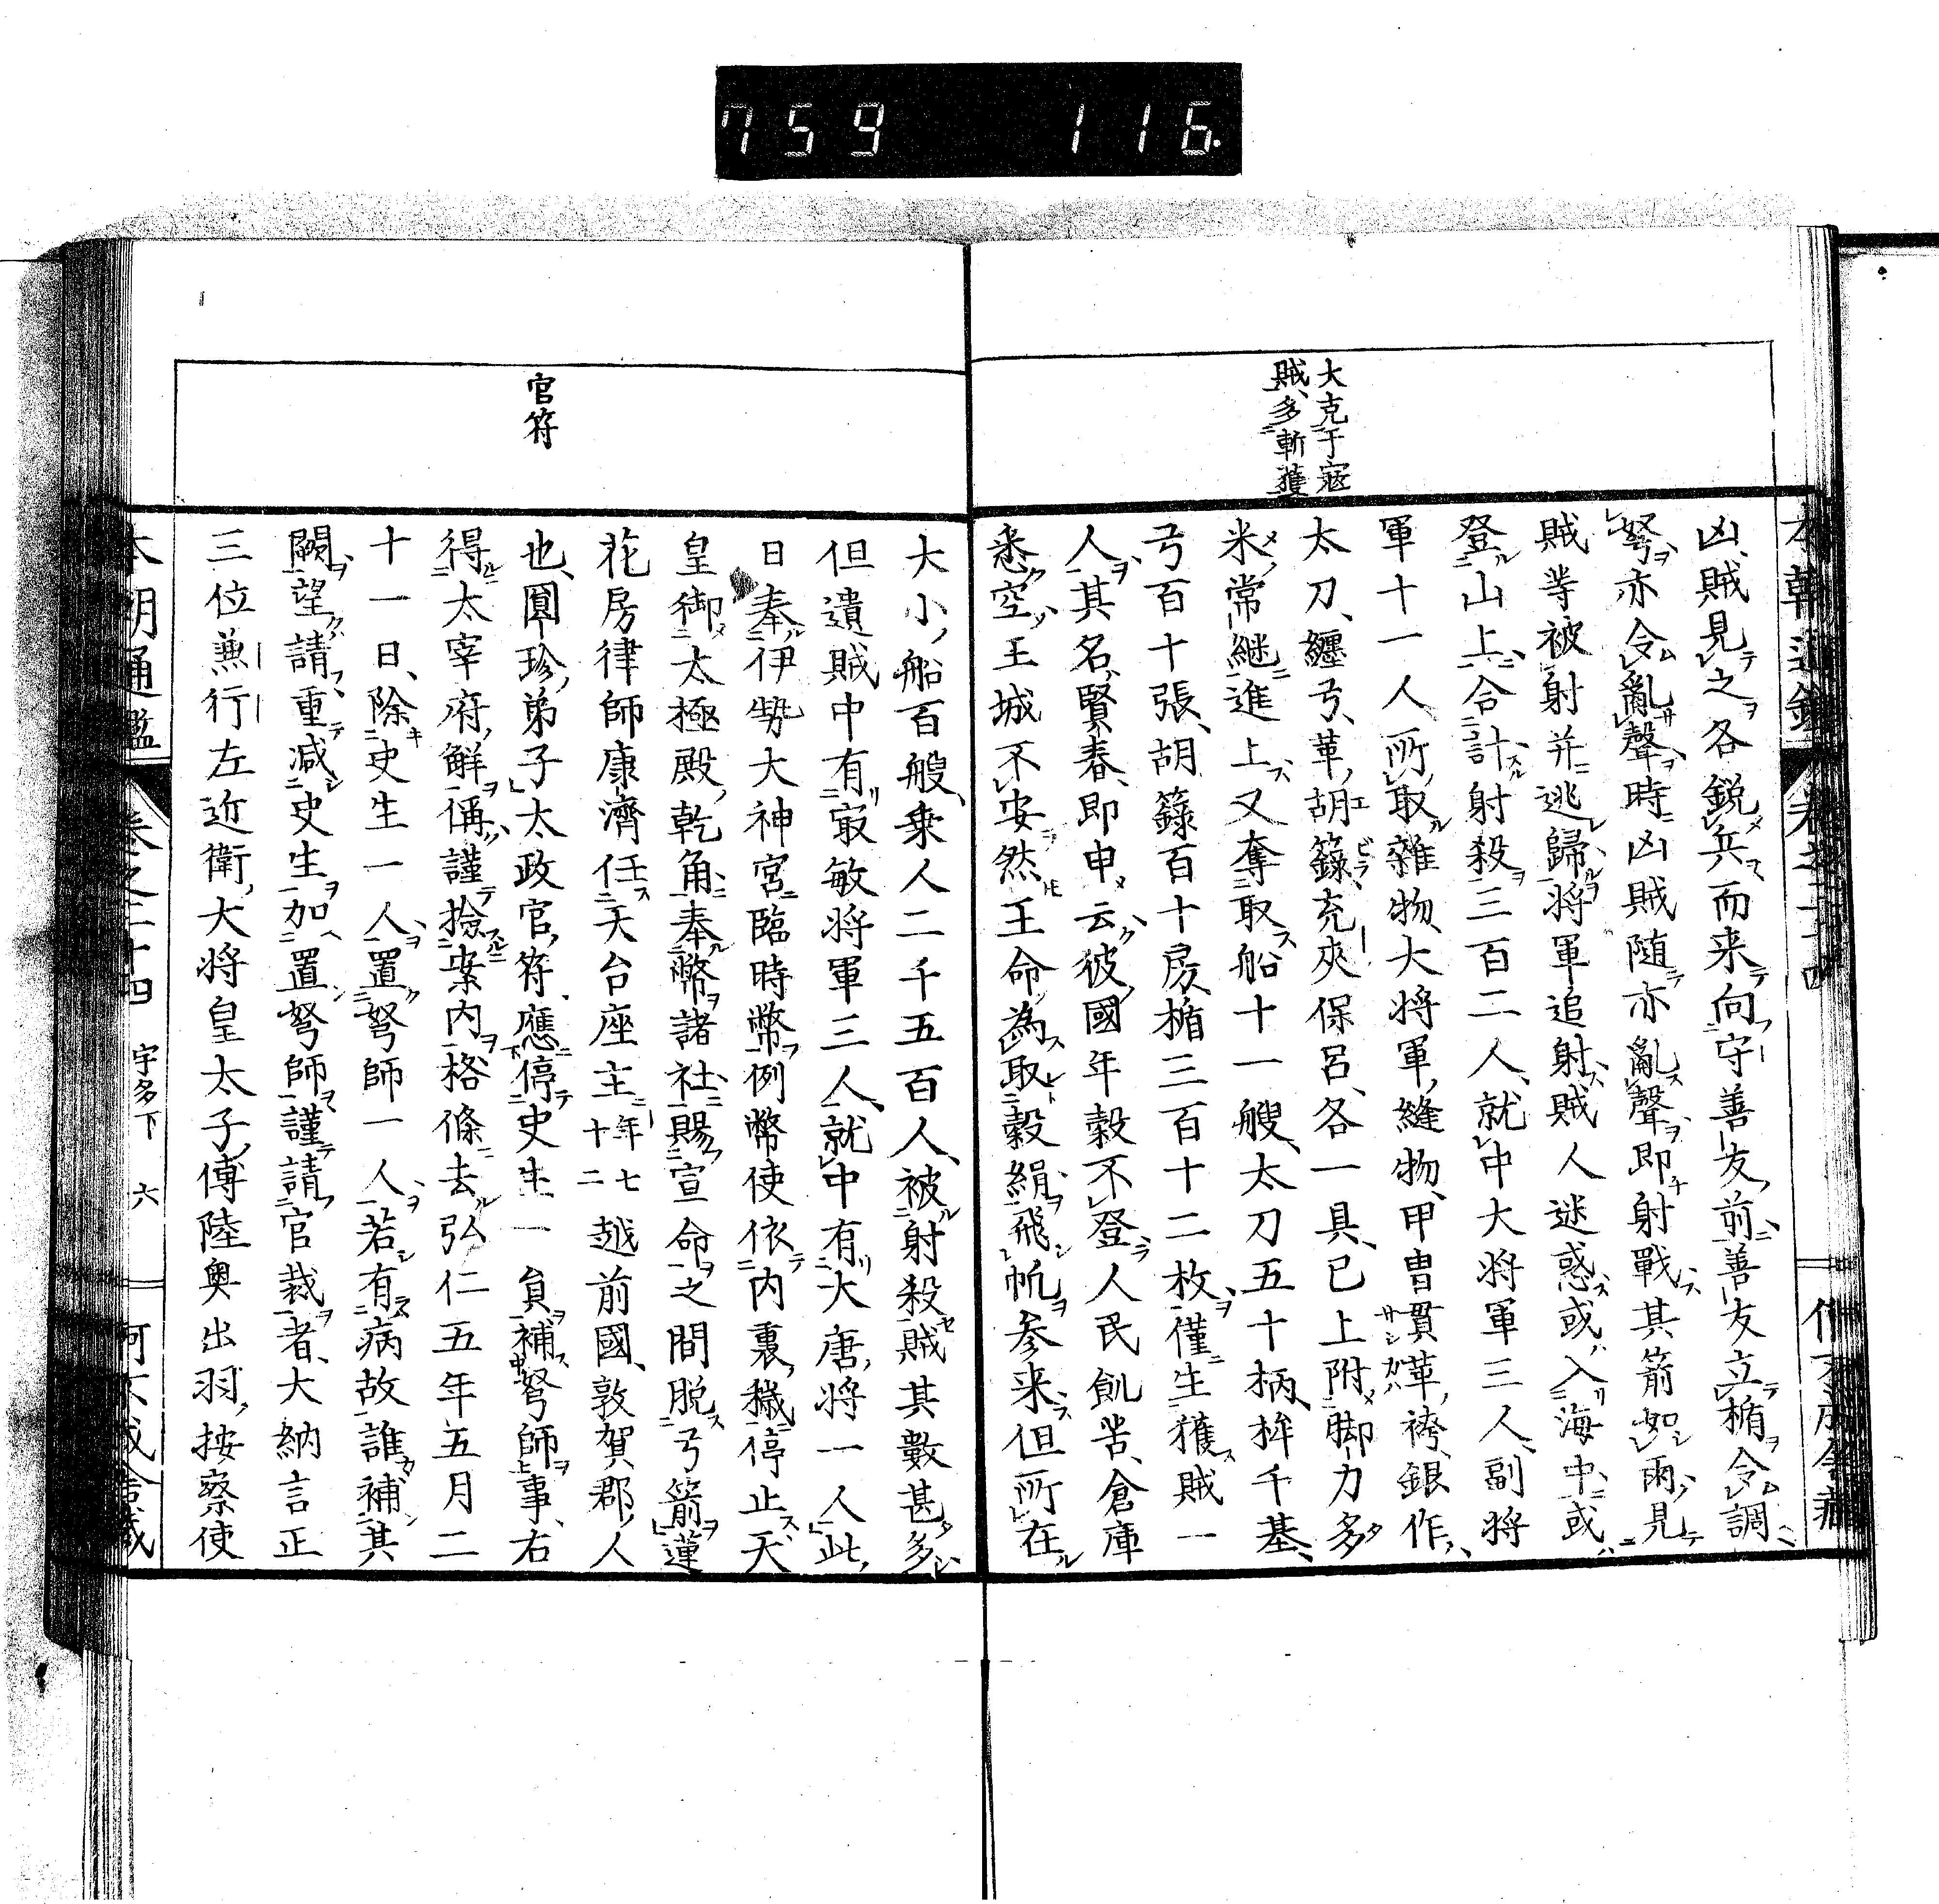 759 116.
大克于寇
賊多斬獲
凶賊見之各銳兵而来向守善友前善友立楯令調
弩亦令亂聲時凶賊随亦亂聲即射戰其箭如雨見
賊等被射并逃歸將軍追射賊人迷惑或入海中或
登山上合計射殺三百二人就中大將軍三人副將
軍十一人所取雜物大將軍縫物甲冑貫革袴銀作
太刀纏弓革胡籙充夾保呂各一具已上附脚力多
米常継進上又奪取船十一艘太刀五十柄桙千基
弓百十張胡籙百十房楯三百十二枚僅生獲賊一
人其名賢春即申云彼國年穀不登人民飢苦倉庫
悉空王城不安然王命為取穀絹飛帆参来但所在
官符
大小船百艘乗人二千五百人被射殺賊其數甚多
但遺賊中有㝡敏將軍三人就中有大唐將一人此
日奉伊勢大神宮臨時幣例幣使依内裏穢停止天
皇御太極殿乾角奉幣諸社賜宣命之間脱弓箭蓮
花房律師康濟任天台座主年七十二越前國敦賀郡人
也圓珍弟子太政官符應停史生一員補弩師事右
得太宰府解偁謹撿案内格條去弘仁五年五月二
十一日除史生一人置弩師一人若有病故誰補其
闕望請重减史生加置弩師謹請官裁者大納言正
三位兼行左近衛大將皇太子傅陸奥出羽按察使
本朝通鑑 卷之二十四 宇多下 六